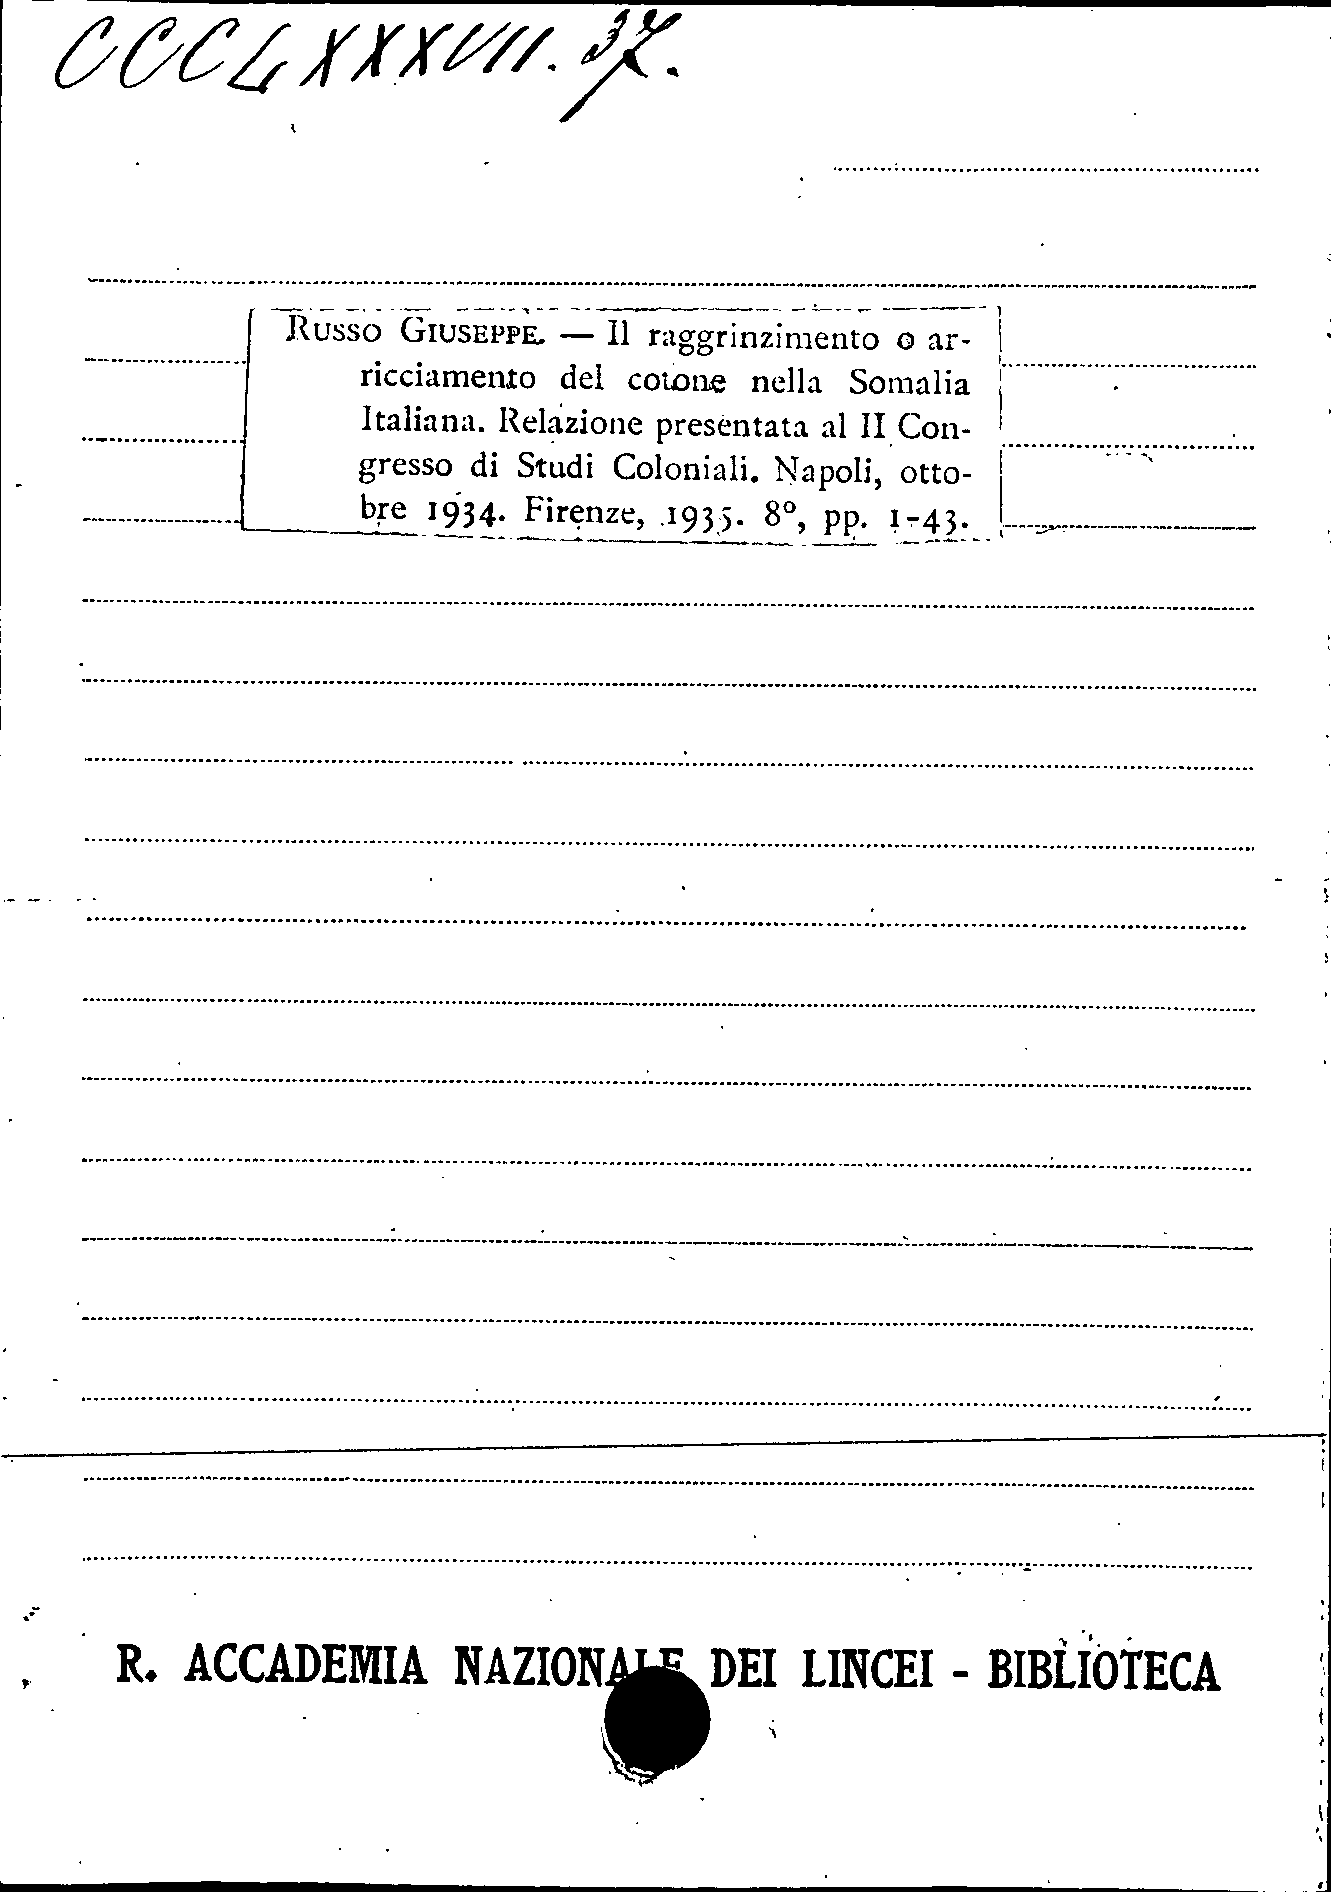 CCCLXXXVII. 37.
RUSSO GIUSEPPE. — Il raggrinzimento o ar-
ricciamento del cotone nella Somalia
Italiana. Relazione presentata al II Con-
gresso di Studi Coloniali. Napoli, otto-
bre 1934. Firenze, 1935. 8º, pp. 1-43.
R. ACCADEMIA NAZIONALE DEI LINCEI - BIBLIOTECA